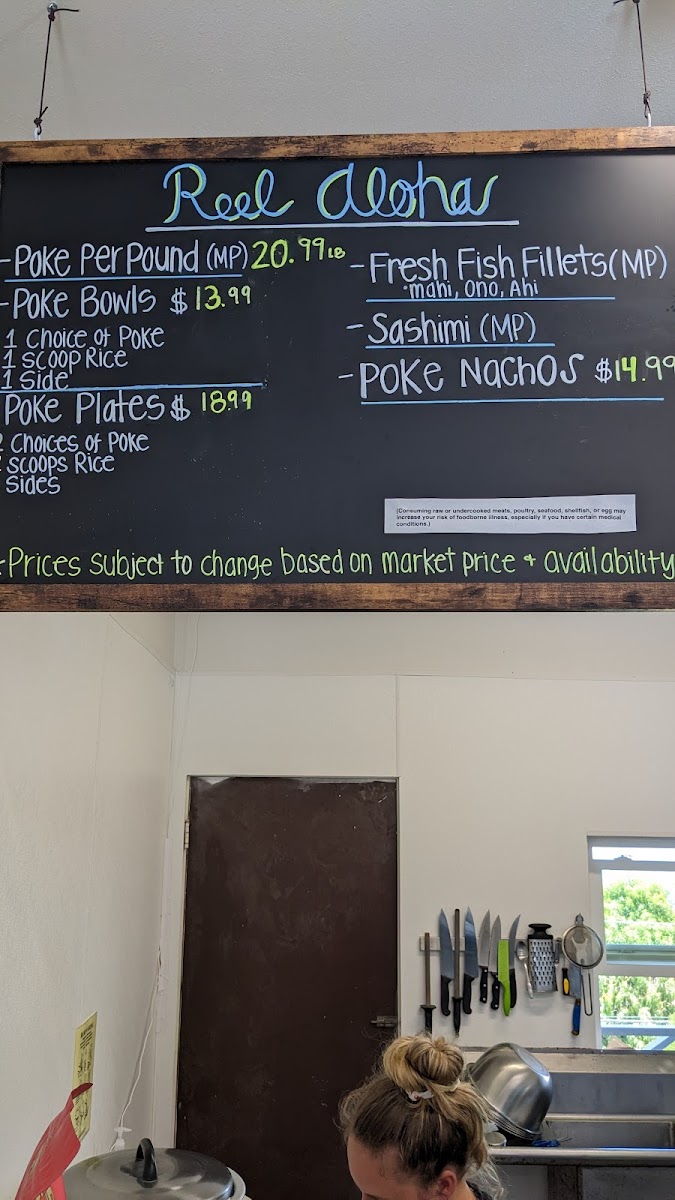 Reel Aloha
- Poke Per Pound (MP) 20.99 LB
- Poke Bowls $13.99
1 Choice of Poke
1 Scoop Rice
1 Side
Poke Plates $ 18.99
2 Choices of Poke
Scoops Rice
Sides
- Fresh Fish Fillets (MP)
• mahi, Ono, Ahi
- Sashimi (MP)
- Poke Nachos $14.99
(Consuming raw or undercooked meats, poultry, seafood, shellfish, or egg may
increase your risk of foodborne illness, especially if you have certain medical
conditions.)
Prices subject to change based on market price + availability